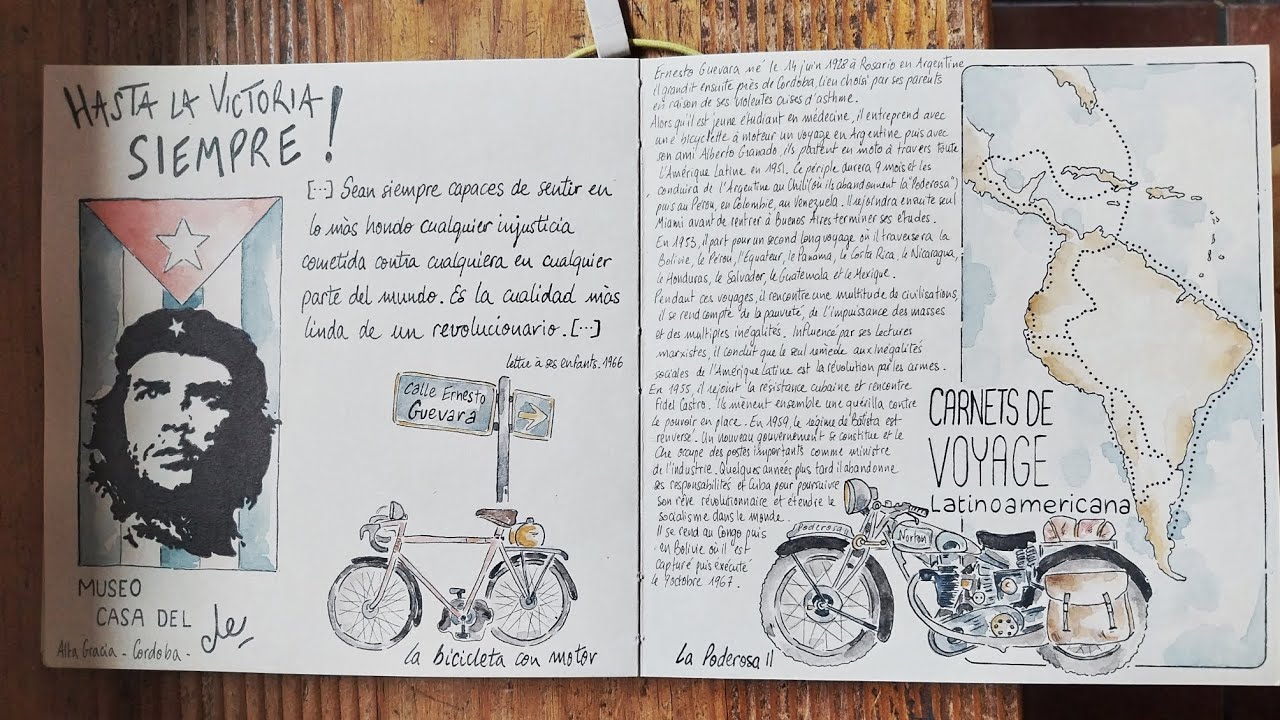 HASTA LA VICTORIA
SIEMPRE !
[...] Sean siempre capaces de sentir en
lo màs hondo cualquier injusticia
cometida contra cualquiera en cualquier
parte del mundo. Es la cualidad màs
linda de un revolucionario. [...]
lettre à ses enfants. 1966
Calle Ernesto
Guevara
MUSEO
CASA DEL
che
Alta Gracia - Cordoba -
la bicicleta con motor
Ernesto Guevara né le 14 juin 1928 à Rosario en Argentine
il grandit ensuite près de Cordoba, lieu choisi par ses parents
en raison de ses violentes crises d'asthme.
Alors qu'il est jeune étudiant en médecine, il entreprend avec
une bicyclette à moteur un voyage en Argentine puis avec
son ami Alberto Granado, ils partent en moto à travers toute
l'Amérique Latine en 1951. Ce périple durera 9 mois et les
conduira de l'Argentine au Chili (où ils abandonnent la "Poderosa")
puis au Pérou, en Colombie, au Venezuela. Il rejoindra ensuite seul
Miami avant de rentrer à Buenos Aires terminer ses études.
En 1953, il part pour un second long voyage où il traversera la
Bolivie, le Pérou, l'Equateur, le Panamá, le Costa Rica, le Nicaragua,
le Honduras, le Salvador, le Guatemala et le Mexique.
Pendant ces voyages, il rencontre une multitude de civilisations,
il se rend compte de la pauvreté, de l'impuissance des masses
et des multiples inégalités. Influencé par ses lectures
marxistes, il conduit que le seul remède aux inégalités
sociales de l'Amérique Latine est la révolution par les armes.
En 1955, il rejoint la résistance cubaine et rencontre
Fidel Castro. Ils mènent ensemble une guérilla contre
le pouvoir en place. En 1959, le régime de Batista est
renversé. Un nouveau gouvernement se constitue et le
Che occupe des postes importants comme ministre
de l'industrie. Quelques années plus tard il abandonne
ses responsabilités et Cuba pour poursuivre
son rêve révolutionnaire et étendre le
socialisme dans le monde.
Il se rend au Congo puis
en Bolivie où il est
capturé puis exécuté
le 9 octobre 1967.
CARNETS DE
VOYAGE
Latinoamericana
Poderosa II
Norton
La Poderosa II